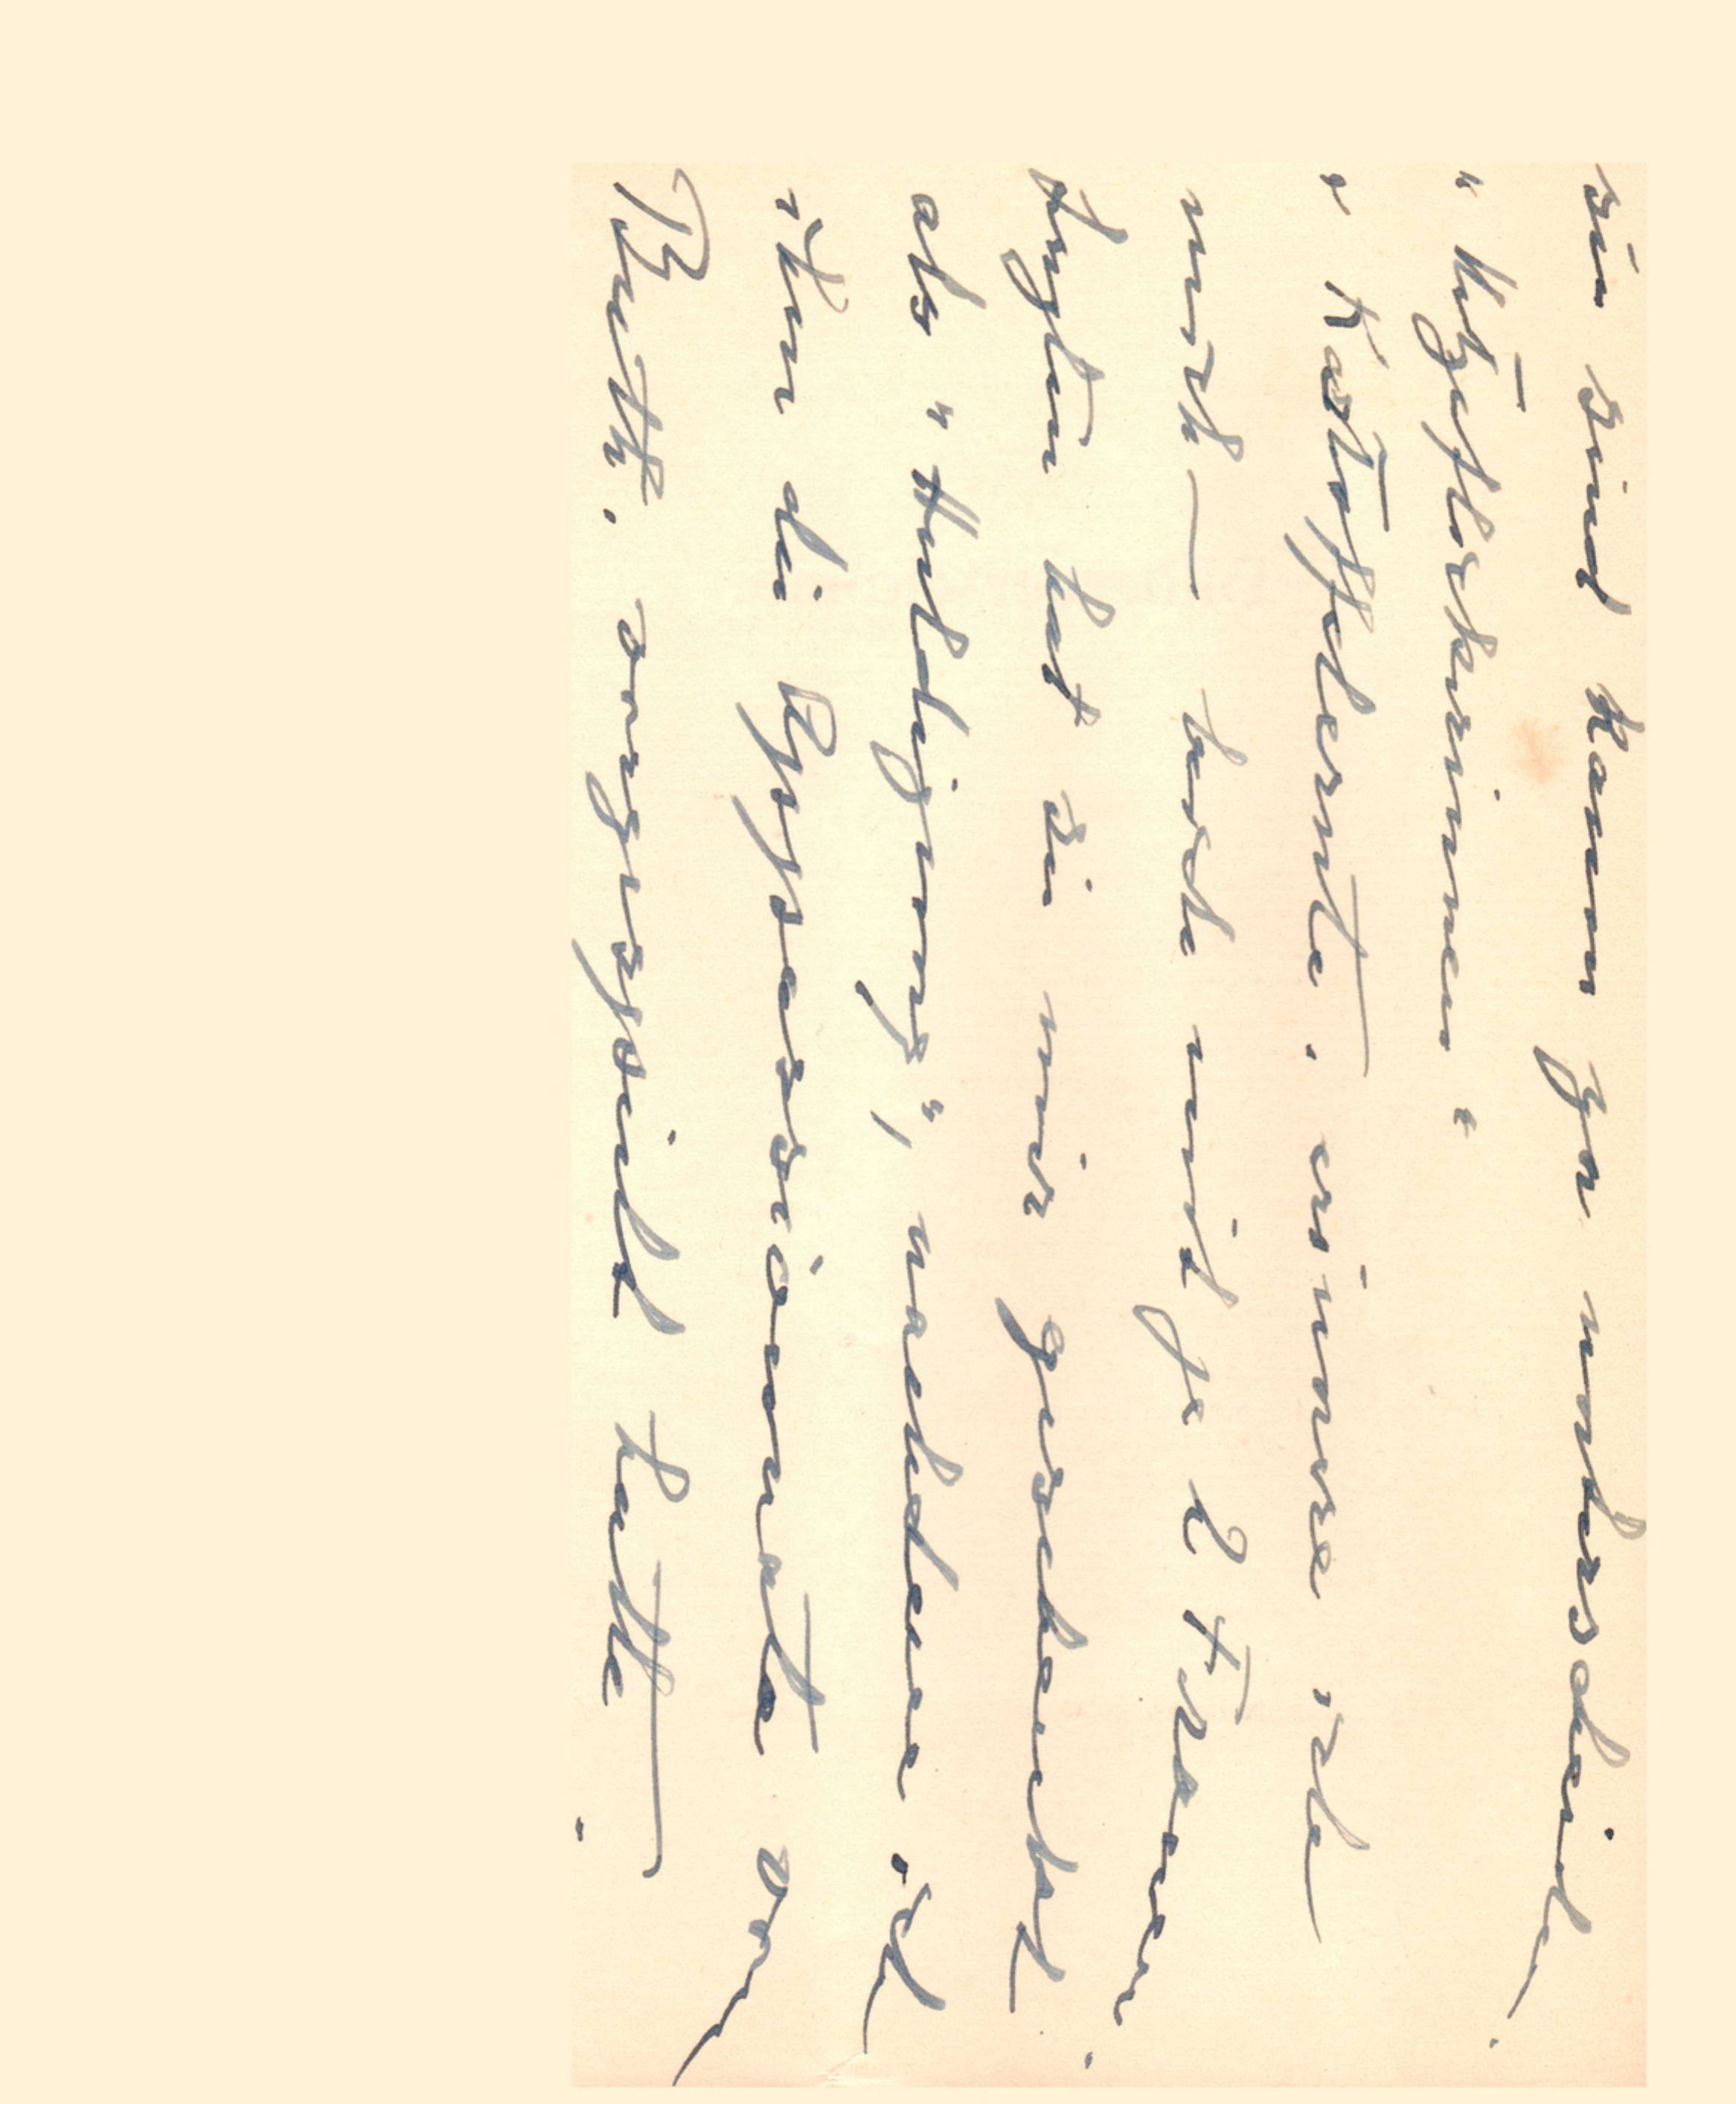 sie sind kaum zu unterscheiden.
„ “
„ Kartoffelernte. erinnere ich
mich — beide mit je 2 Frauen.
hat sie mir geschenkt
als „Huldigung“, nachdem ich
ihr die Appassionata von
Beeth. vorgespielt hatte